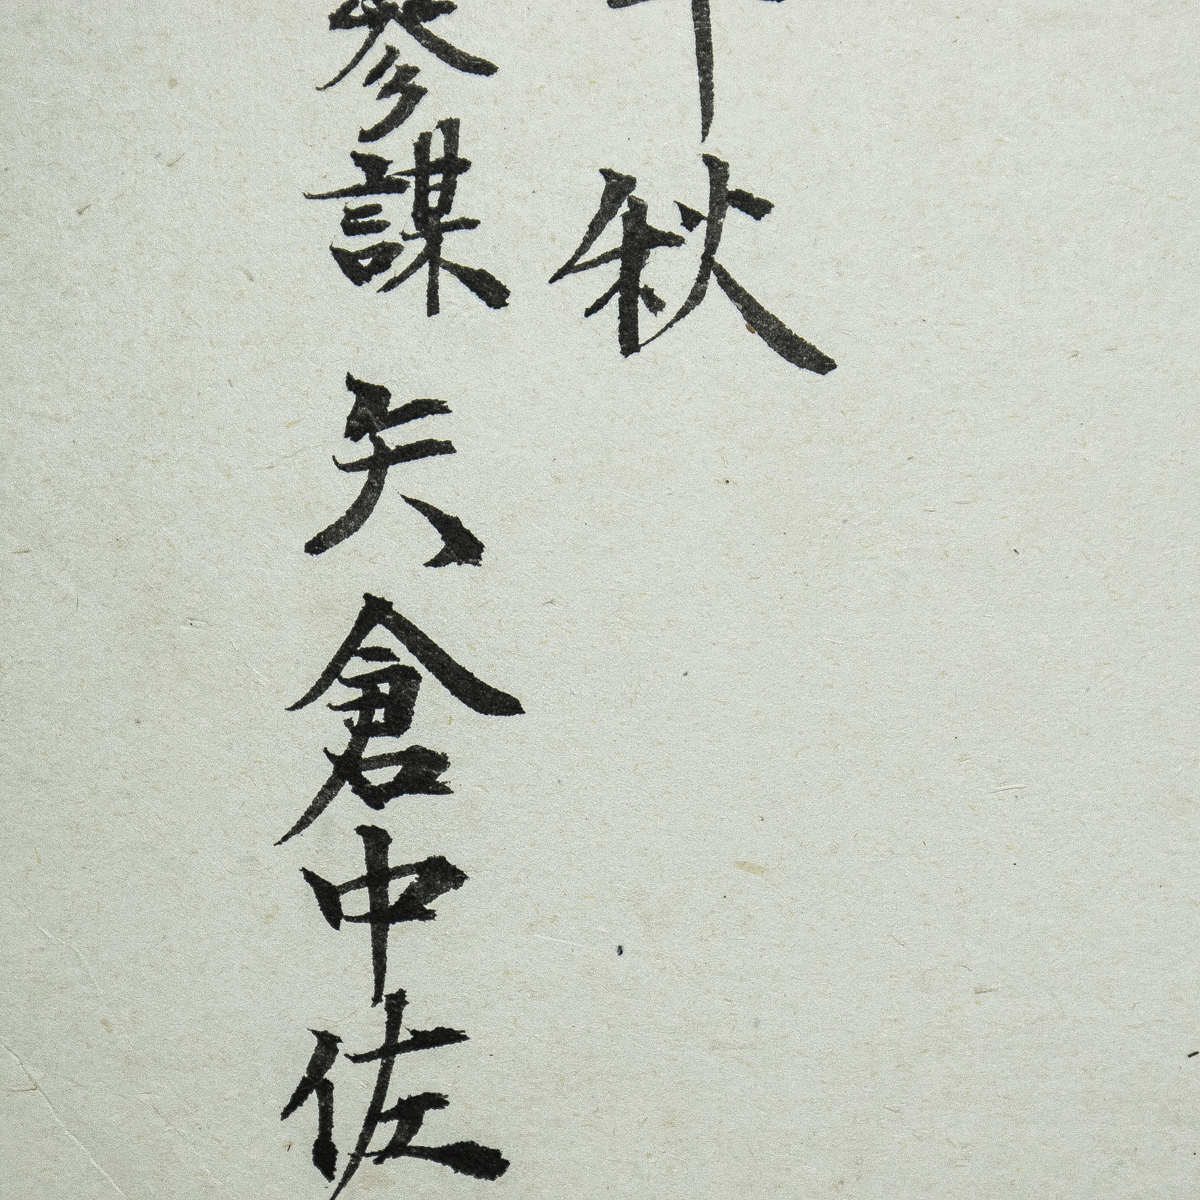 秋
參謀 矢倉中佐